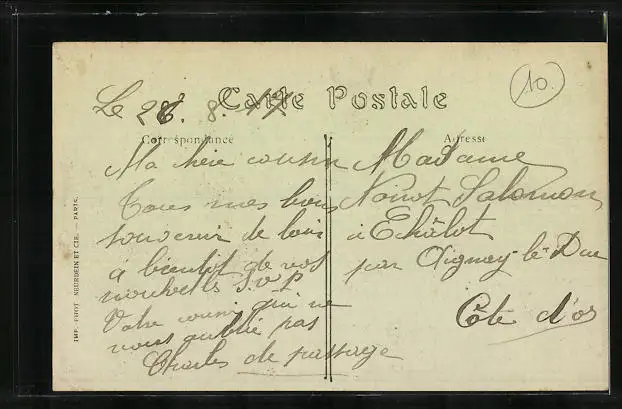 Carte Postale
Le 26. 8. 17
10
Correspondance
Adresse
Ma chère cousin
Tous mes bons
souvenir de loin
à bientôt de vos
nouvelles S.V.P
Votre cousin qui ne
vous oublie pas
Charles de passage
Madame
Noirot Salomon
à Echâlot
par Aignay-le-Duc
Côte d'or
IMP. PHOT. NEURDEIN ET CIE. — PARIS.